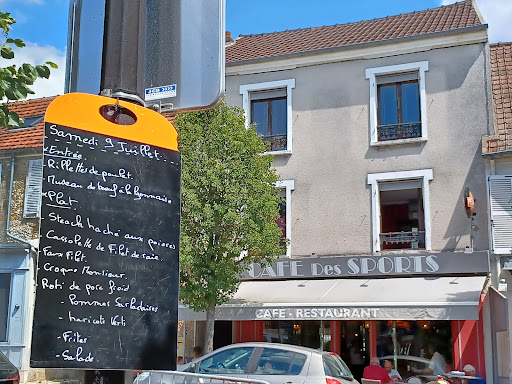 Samedi 9 Juillet.
Entrée.
- Rillettes de poulet
- Museau de bœuf à la lyonnaise
Plat
- Steack haché aux poivres
Cassolette de Filet de raie.
Faux Filet.
Croque Monsieur
Roti de porc froid
- Pommes Sarladaises
- haricots Verts
- Frites
- Salade
CAFE DES SPORTS
CAFE - RESTAURANT